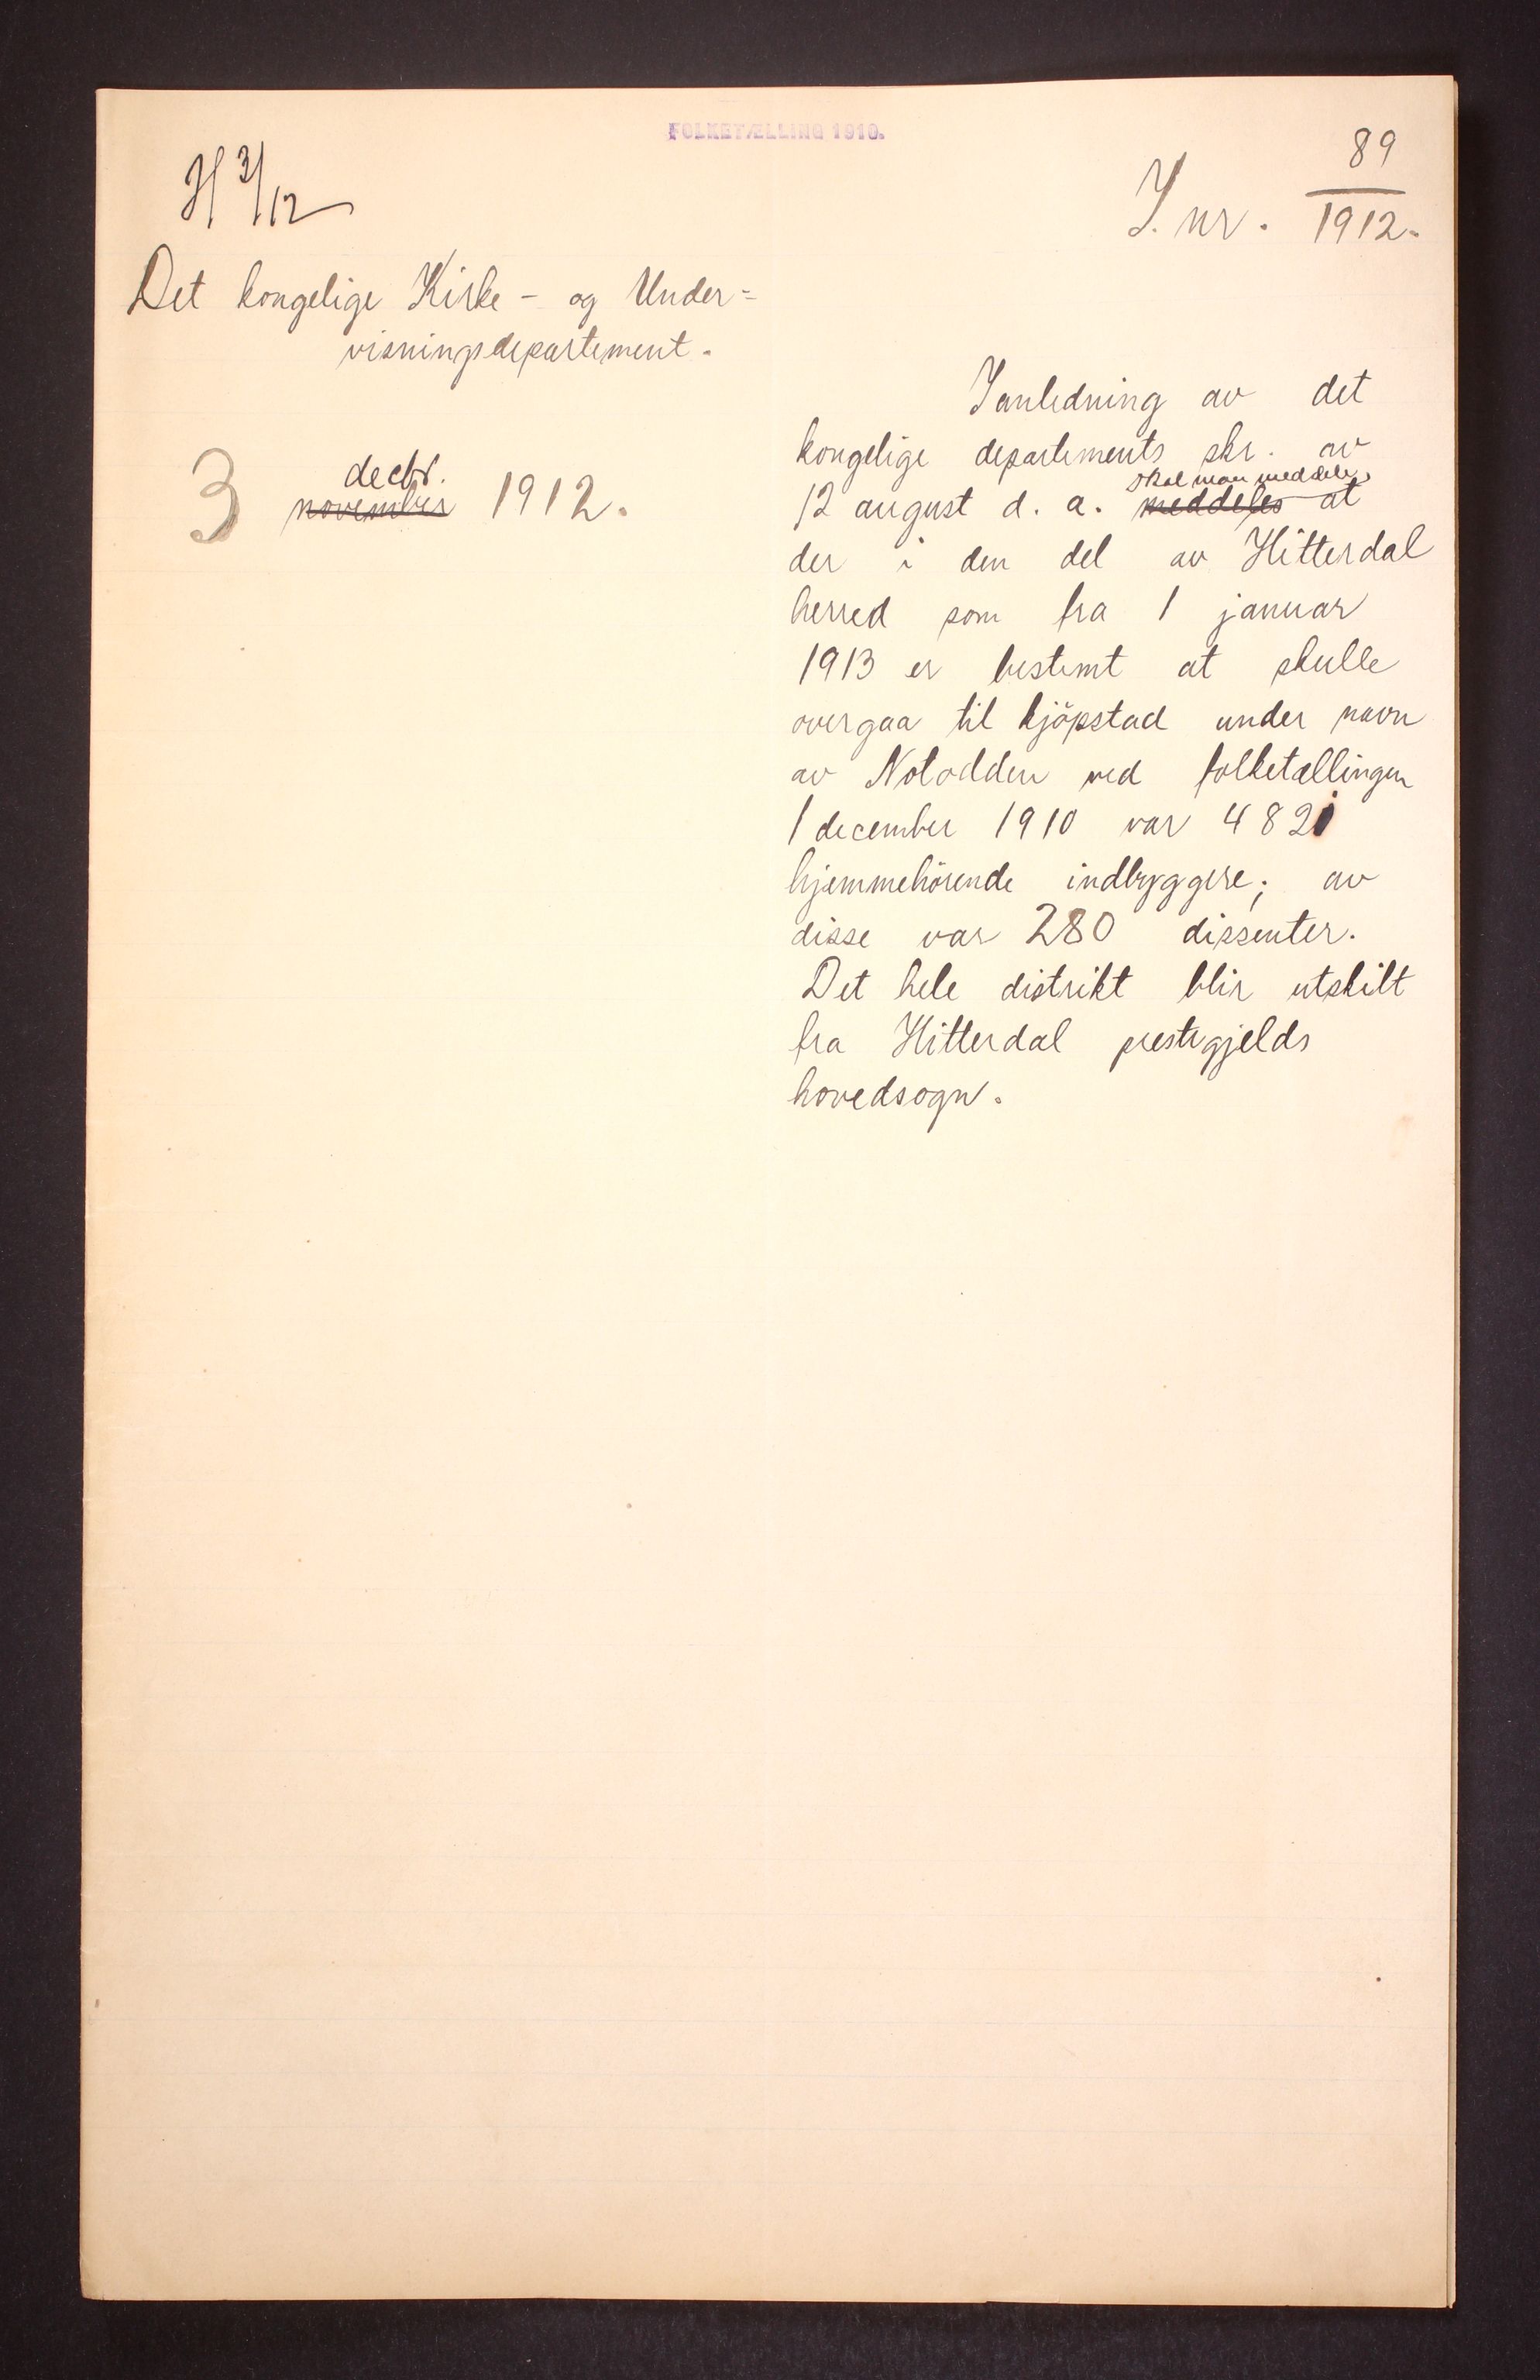 FOLKETÆLLING 1910.
H 3/12
J. nr. 89/1912.
Det kongelige Kirke- og Under=
visningsdepartement.
3 decbr. november 1912.
I anledning av det
kongelige departements skr. av
skal man meddele,
12 august d. a. meddeles at
der i den del av Hitterdal
herred som fra 1 januar
1913 er bestemt at skulle
overgaa til kjöpstad under navn
av Notodden ved folketællingen
1 december 1910 var 4821
hjemmehörende indbyggere; av
disse var 280 dissenter.
Det hele distrikt blir utskilt
fra Hitterdal prestegjelds
hovedsogn.